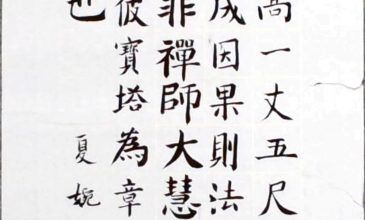 高一丈五尺
成因果則法
非禪師大慧
彼寶塔為章
也
夏婉